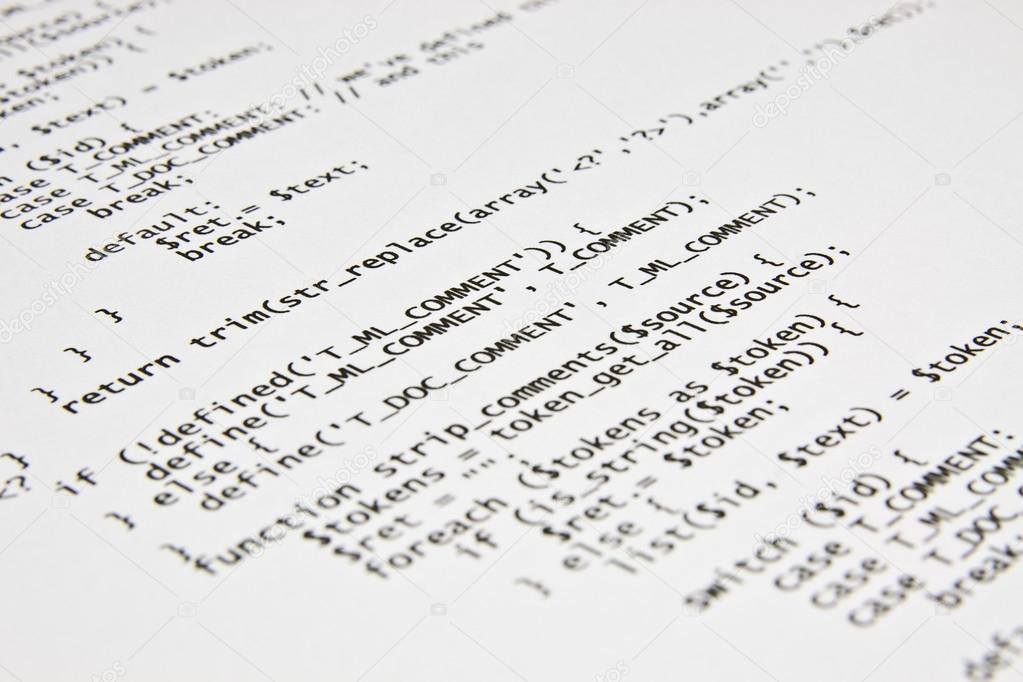 $text) = $token;
($id) {
case T_COMMENT:
case T_ML_COMMENT: // we've defined
case T_DOC_COMMENT: // and this
break;
default:
$ret .= $text;
break;
}
}
}
return trim(str_replace(array('<?','?>'),array('',''),$ret));
}
<?
if (!defined('T_ML_COMMENT')) {
define('T_ML_COMMENT', T_COMMENT);
} else {
define('T_DOC_COMMENT', T_ML_COMMENT);
}
function strip_comments($source) {
$tokens = token_get_all($source);
$ret = "";
foreach ($tokens as $token) {
if (is_string($token)) {
$ret .= $token;
} else {
list($id, $text) = $token;
switch ($id) {
case T_COMMENT:
case T_ML_COMM
case T_DOC_C
break;
defa